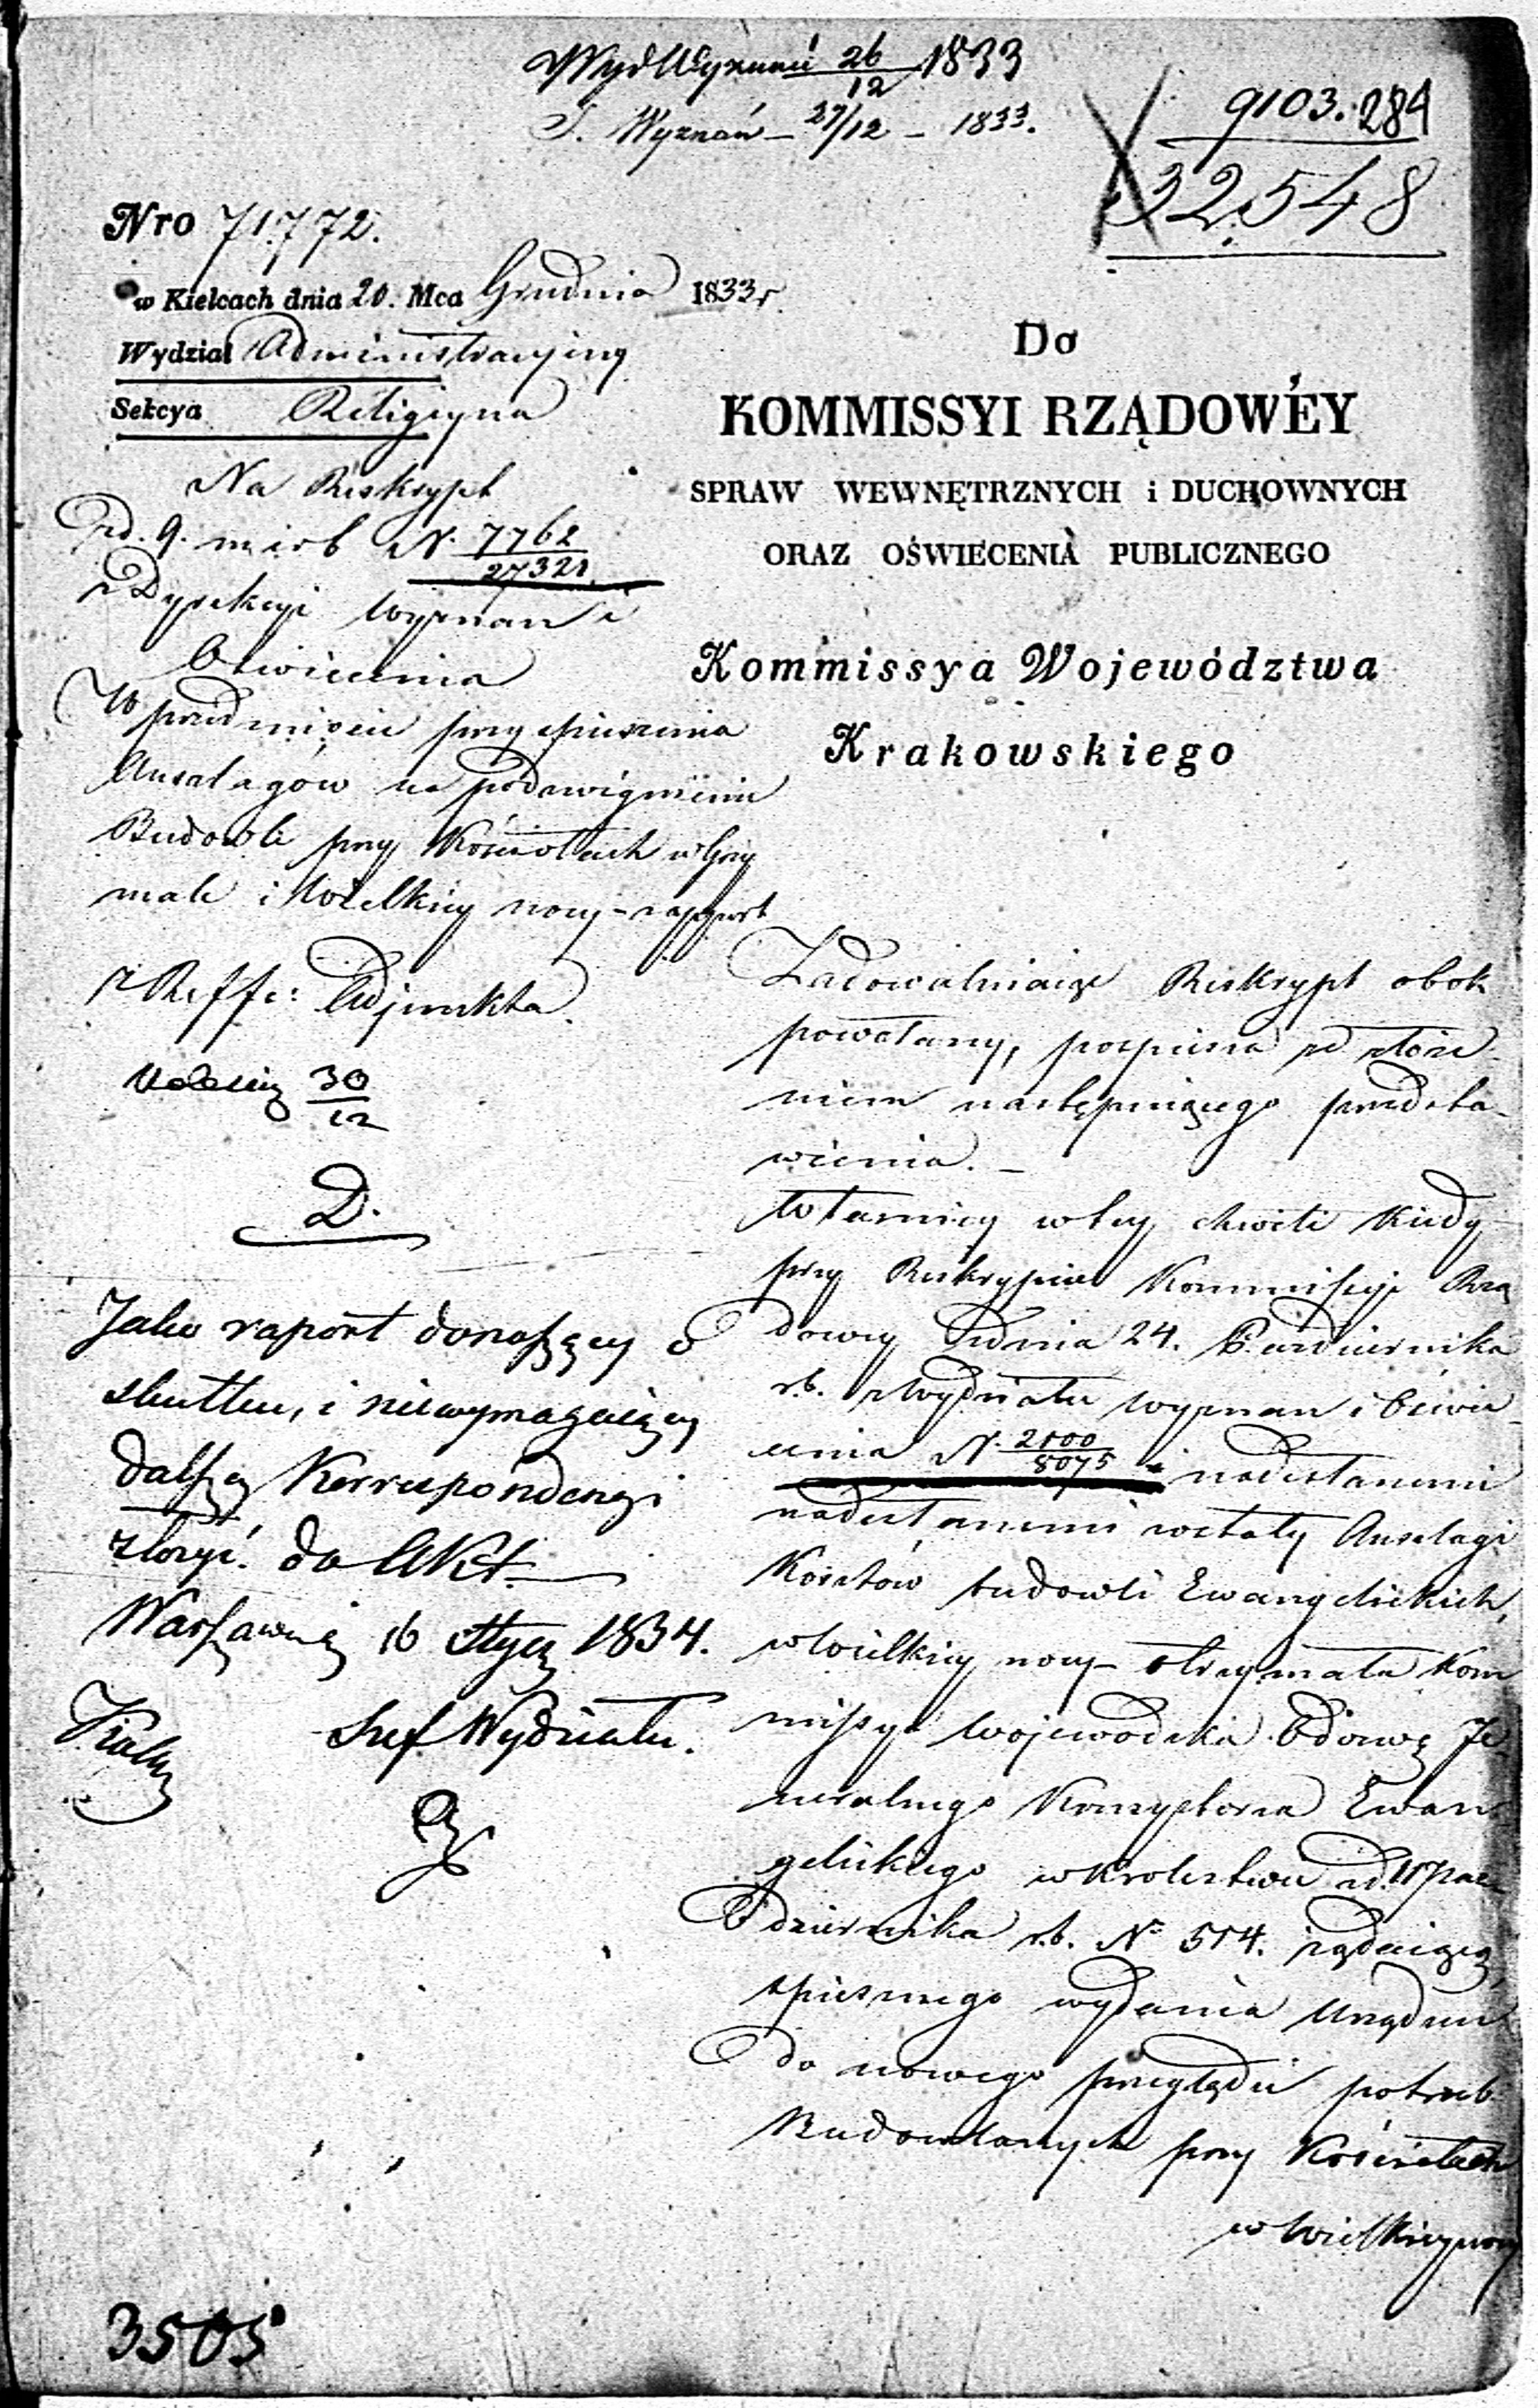 Wyd Wyznań 26/12 1833
S. Wyznań – 27/12 – 1833.
9103. 284
32548
Nro 71,772.
w Kielcach dnia 20. Mca Grudnia 1833 r.
Wydział Administracyiny
Sekcya Religiyna
Na Reskrypt
z d. 9. m i r b N. 7762/27321
z Dyrekcyi Wyznań i
Oświecenia
W przedmiocie przyspieszenia
Anszlagów na podzwignienie
Budowli przy Kościołach w Grzy
male i Wielkiey nocy – rapport
z Reffe: Adjunkta.
30/12
D.
Jako raport donoszący o
skutku, i niewymagaiący
dalszey Korrespondencyi
złożyć do Akt.
Warszawa 16 Stycz 1834.
Szef Wydziału.
Do
KOMMISSYI RZĄDOWÉY
SPRAW WEWNĘTRZNYCH i DUCHOWNYCH
ORAZ OŚWIECENIA PUBLICZNEGO
Kommissya Województwa
Krakowskiego
Zadowalniaiąc Reskrypt obok
powołany, pospiesza ze złoże-
niem następuiącego przedsta-
wienia. –
W tamtey w tey chwili kiedy
przy Reskrypcie Kommissyi Rzą
dowey z dnia 24. Października
r.b. z Wydziału Wyznań i Oświe-
cenia N. 2100/8075 i nadesłanemi
nadesłanemi zostały Anszlagi
Kosztów budowli Ewangelickich,
w Wielkiey nocy – otrzymała Kom
missya Wojewódzka Odezwę Je-
neralnego Konsystorza Ewan
gelickiego w Królestwie z d. 11 Paź-
dziernika r.b. Nº 514. żądaiącą
spiesznego wydania Urządzeń
do nowego przeglądu potrzeb
Budowlanych przy Kościołach
w Wielkieynocy
3505